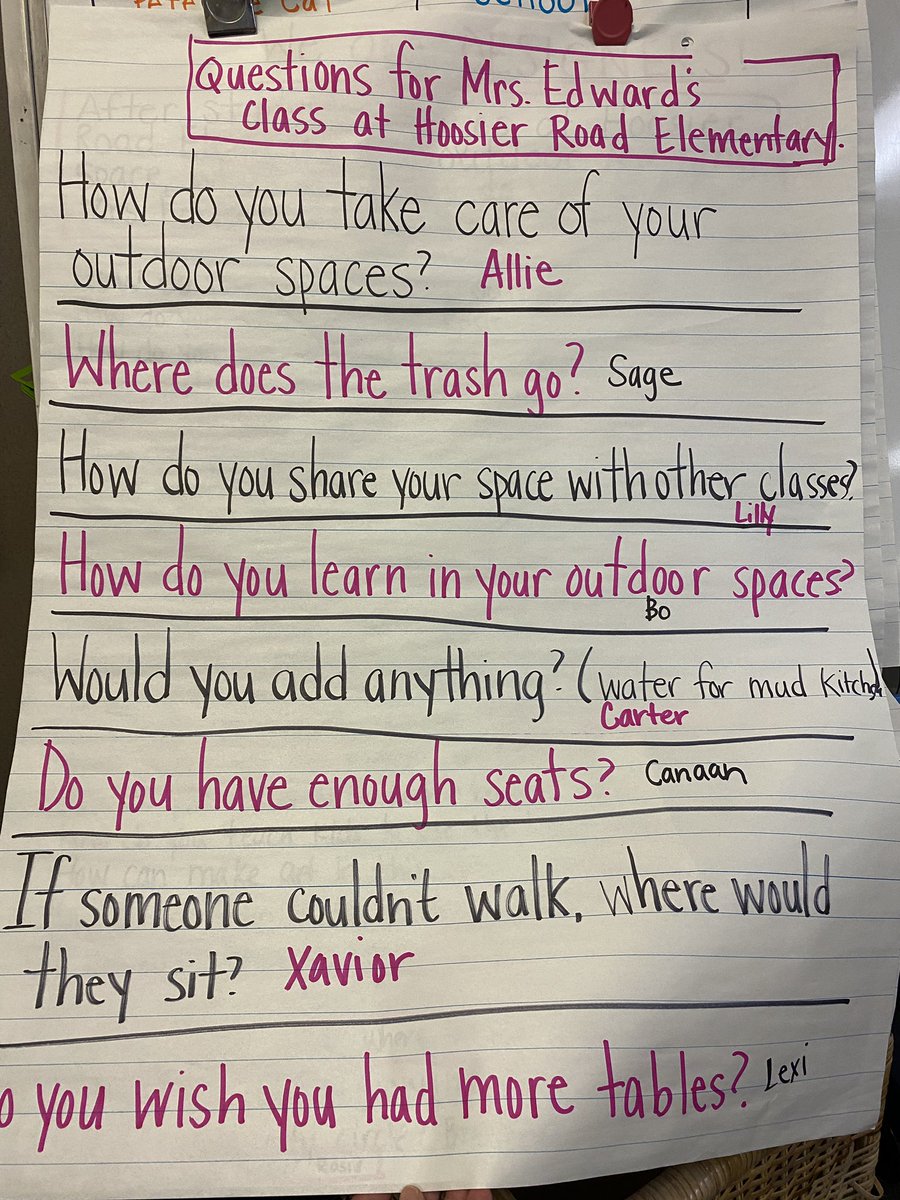 Questions for Mrs. Edward's
Class at Hoosier Road Elementary.
How do you take care of your
outdoor spaces? Allie
Where does the trash go? Sage
How do you share your space with other classes?
Lilly
How do you learn in your outdoor spaces?
Bo
Would you add anything? (water for mud kitchen
Carter
Do you have enough seats? Canaan
If someone couldn't walk, where would
they sit? Xavior
o you wish you had more tables? Lexi